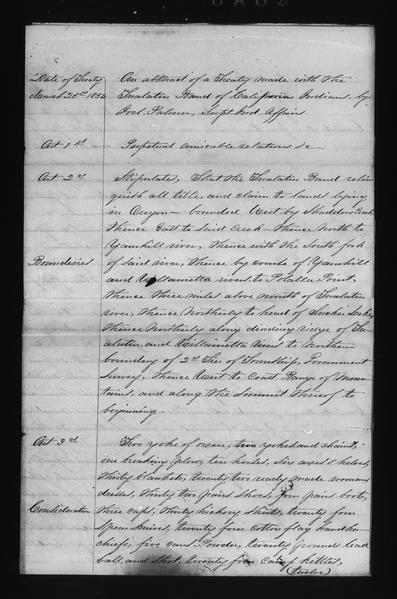 Date of Treaty An abstract of a Treaty made with the
March 25th 1854 Tualatin Band of Calipooia Indians by
Joel Palmer, Supt Ind Affairs
Art 1st Perpetual amicable relations &c
Art 2d Stipulates, That the Tualatin Band relin
quish all title and claim to lands lying
in Oregon— bounded West by
thence East to said Creek thence North to
Yamhill river, thence with the South fork
Boundaries of said river, thence by course of Yamhill
and Willamette rivers, to Point,
thence three miles above mouth of Tualatin
river, thence Northerly to head of
thence Northerly along dividing ridge of Tu
alatin and Willamette rivers to Northern
boundary of 2d Tier of Townships, Government
Survey, thence West to Coast Range of Moun
tains, and along the Summit thereof to
beginning.
Art 3d Two yoke of oxen, two yokes and chains,
one breaking plow, ten hoes, six axes & helves,
thirty blankets, twenty two ready made woman
dresses, thirty two pairs shoes, four pairs boots,
Consideration three caps, thirty hickory shirts, twenty four
twenty four cotton flag handker
chiefs, five cans Powder, twenty pounds lead
ball, and shot, twenty four kettles,
(twelve)